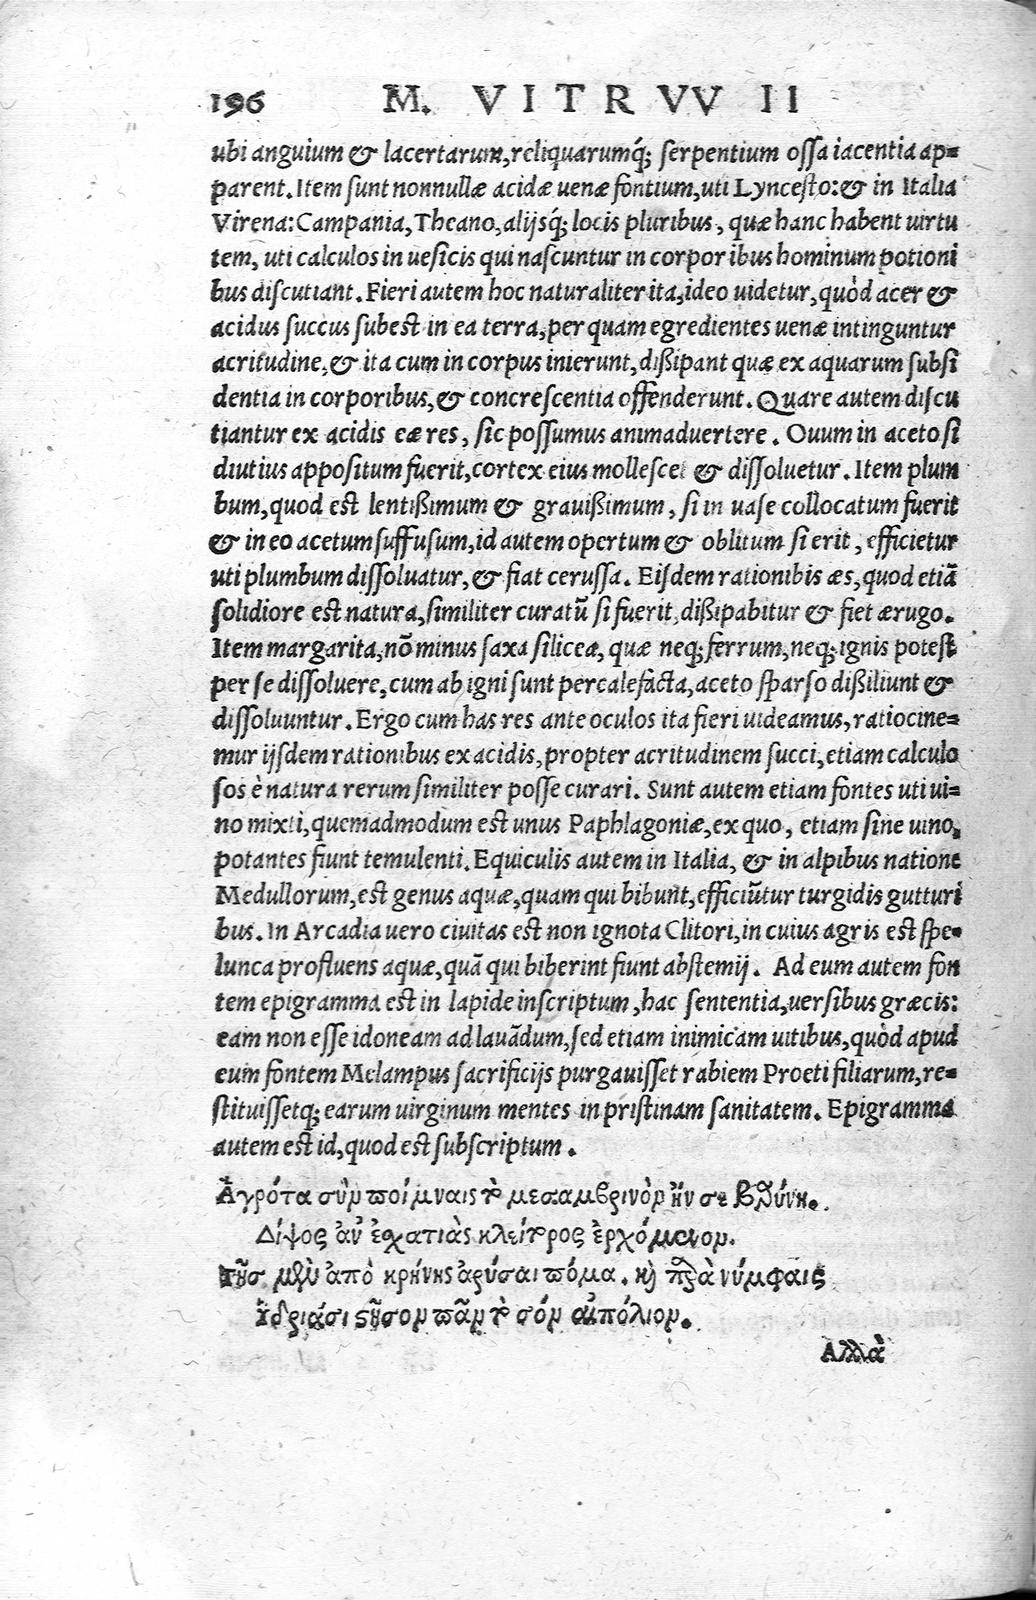 196 M. VITRVVII
ubi anguium & lacertarum, reliquarumq́; serpentium ossa iacentia ap=
parent. Item sunt nonnullæ acidæ uenæ fontium, uti Lyncesto: & in Italia
Virena: Campania, Theano, alijsq́; locis pluribus, quæ hanc habent uirtu
tem, uti calculos in uesicis qui nascuntur in corporibus hominum potioni
bus discutiant. Fieri autem hoc naturaliter ita, ideo uidetur, quòd acer &
acidus succus subest in ea terra, per quam egredientes uenæ intinguntur
acritudine, & ita cum in corpus inierunt, dißipant quæ ex aquarum subsi
dentia in corporibus, & concrescentia offenderunt. Quare autem discu
tiantur ex acidis eæ res, sic possumus animaduertere. Ouum in aceto si
diutius appositum fuerit, cortex eius mollescet & dissoluetur. Item plum
bum, quod est lentißimum & grauißimum, si in uase collocatum fuerit
& in eo acetum suffusum, id autem opertum & oblitum si erit, efficietur
uti plumbum dissoluatur, & fiat cerussa. Eisdem rationibis æs, quod etiã
solidiore est natura, similiter curatũ si fuerit, dißipabitur & fiet ærugo.
Item margarita, nõ minus saxa silicea, quæ neq; ferrum, neq; ignis potest
per se dissoluere, cum ab igni sunt percalefacta, aceto sparso dißiliunt &
dissoluuntur. Ergo cum has res ante oculos ita fieri uideamus, ratiocine=
mur ijsdem rationibus ex acidis, propter acritudinem succi, etiam calculo
sos è natura rerum similiter posse curari. Sunt autem etiam fontes uti ui=
no mixti, quemadmodum est unus Paphlagoniæ, ex quo, etiam sine uino,
potantes fiunt temulenti. Equiculis autem in Italia, & in alpibus natione
Medullorum, est genus aquæ, quam qui bibunt, efficiũtur turgidis gutturi
bus. In Arcadia uero ciuitas est non ignota Clitori, in cuius agris est spe=
lunca profluens aquæ, quã qui biberint fiunt abstemij. Ad eum autem fon
tem epigramma est in lapide inscriptum, hac sententia, uersibus græcis:
eam non esse idoneam ad lauãdum, sed etiam inimicam uitibus, quòd apud
eum fontem Melampus sacrificijs purgauisset rabiem Proeti filiarum, re=
stituissetq; earum uirginum mentes in pristinam sanitatem. Epigramma
autem est id, quod est subscriptum.
Ἀγρότα σὺν ποίμναις τὸ μεσαμβρινὸν ἤν σε βαθύνῃ.
Δίψος ἀν' ἐσχατιὰς κλείτορος ἐρχόμενον.
Τῆς μὲν ἀπὸ κρήνης ἀρύσαι πόμα. καὶ παρὰ νύμφαις
Ὑδριάσι στῆσον πᾶν τὸ σόν αἰπόλιον.
Ἀλλὰ